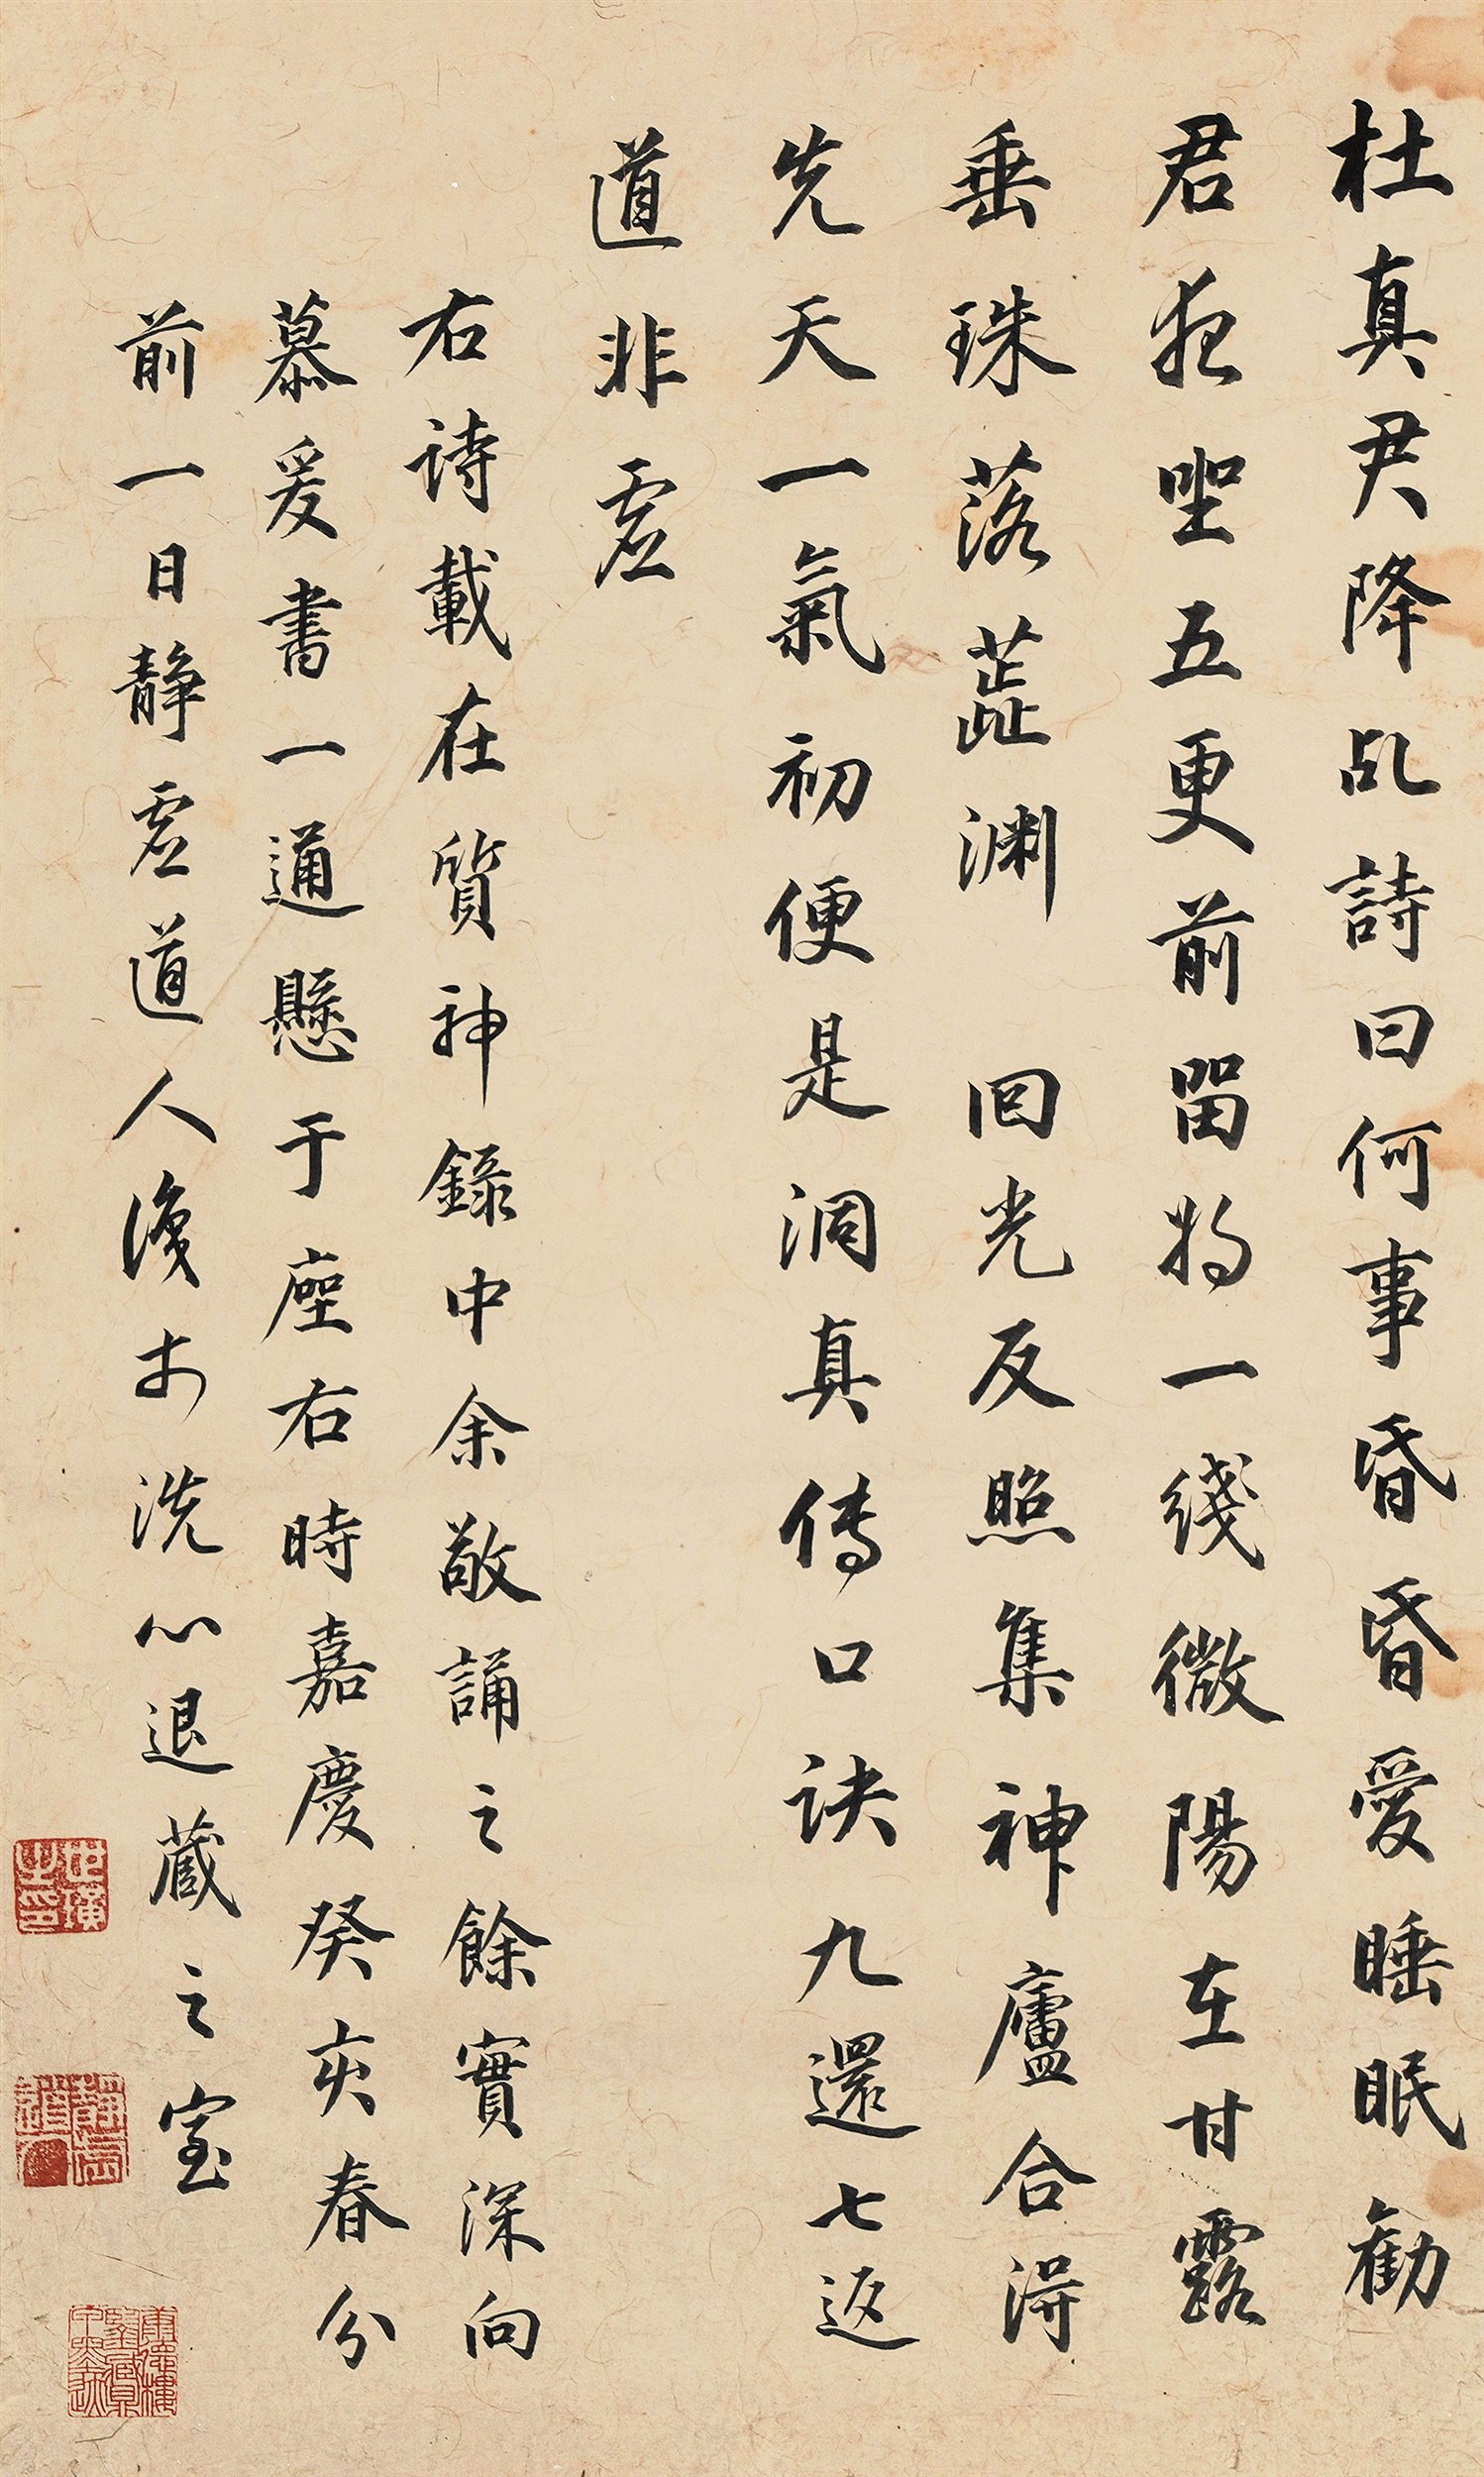 杜真君降乩詩曰何事昏昏愛睡眠勸
君夜坐五更前留將一綫微陽在甘露
垂珠落蕋淵　回光反照集神廬合得
先天一氣初便是洞真傳口訣九還七返
道非虛
右詩載在質神錄中余敬誦之餘實深向
慕爰書一通懸于座右時嘉慶癸亥春分
前一日靜虛道人漫書洗心退藏之室